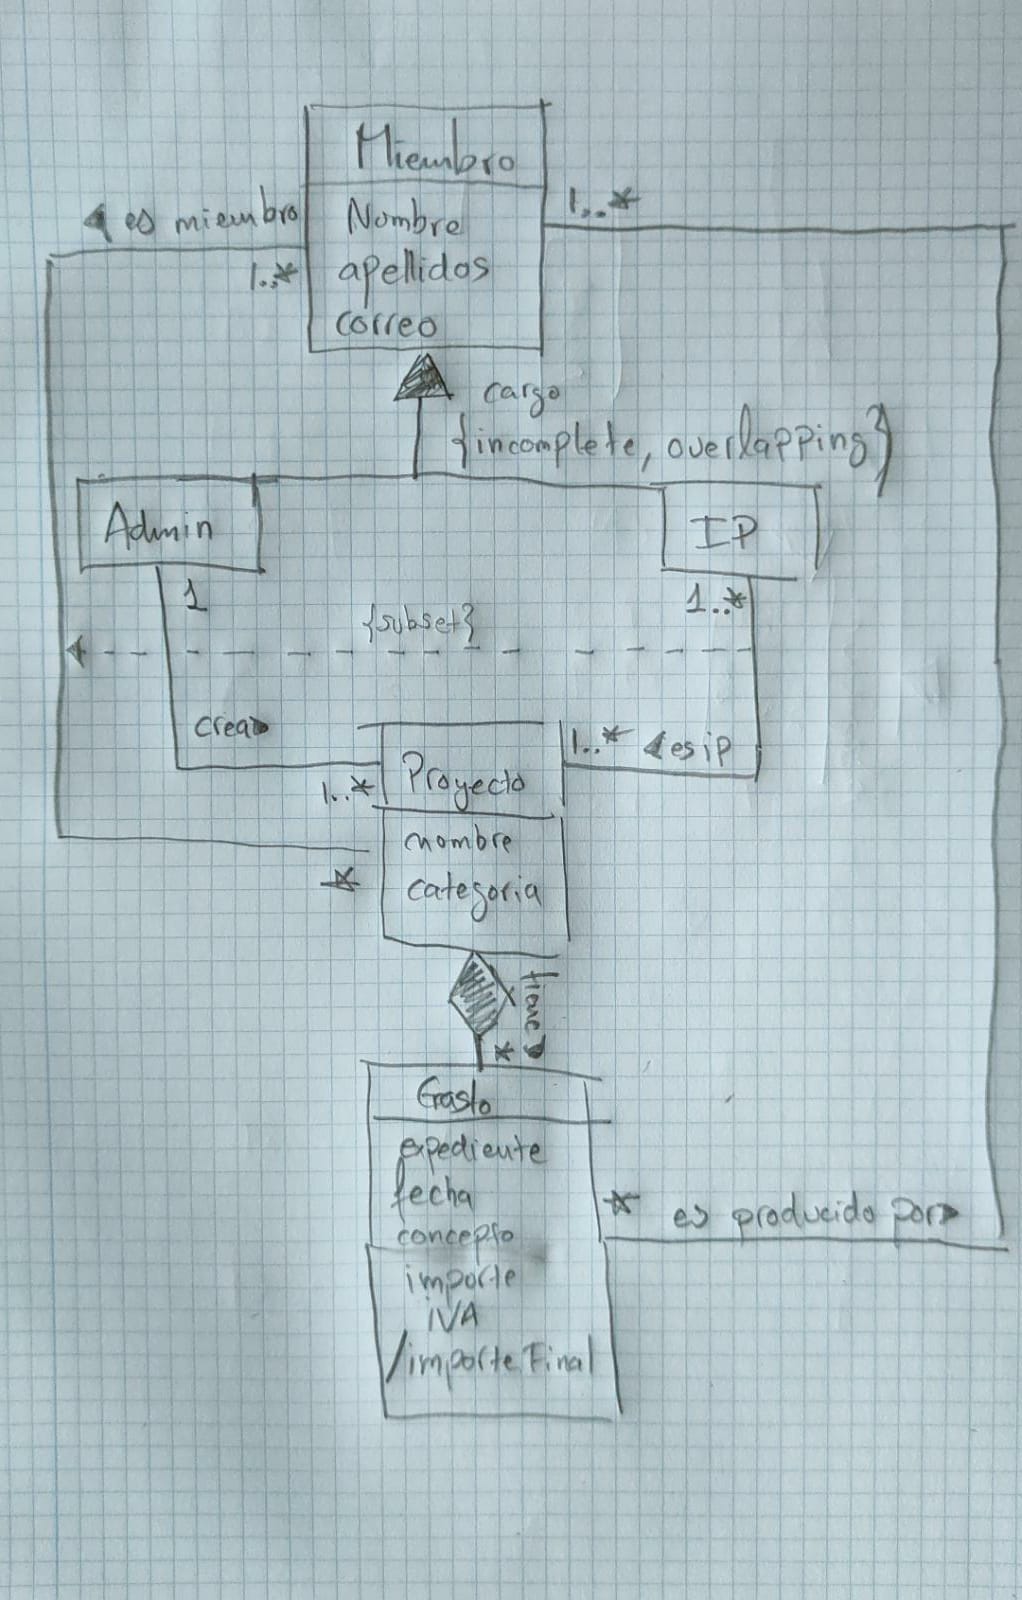 Miembro
es miembro
1..*
1..*
Nombre
apellidos
correo
cargo
{incomplete, overlapping}
Admin
IP
1
1..*
{subset}
crea
1..*
1..*
es iP
Proyecto
nombre
categoria
*
tiene
*
Gasto
expediente
fecha
concepto
importe
iVA
/importe Final
*
es producido por